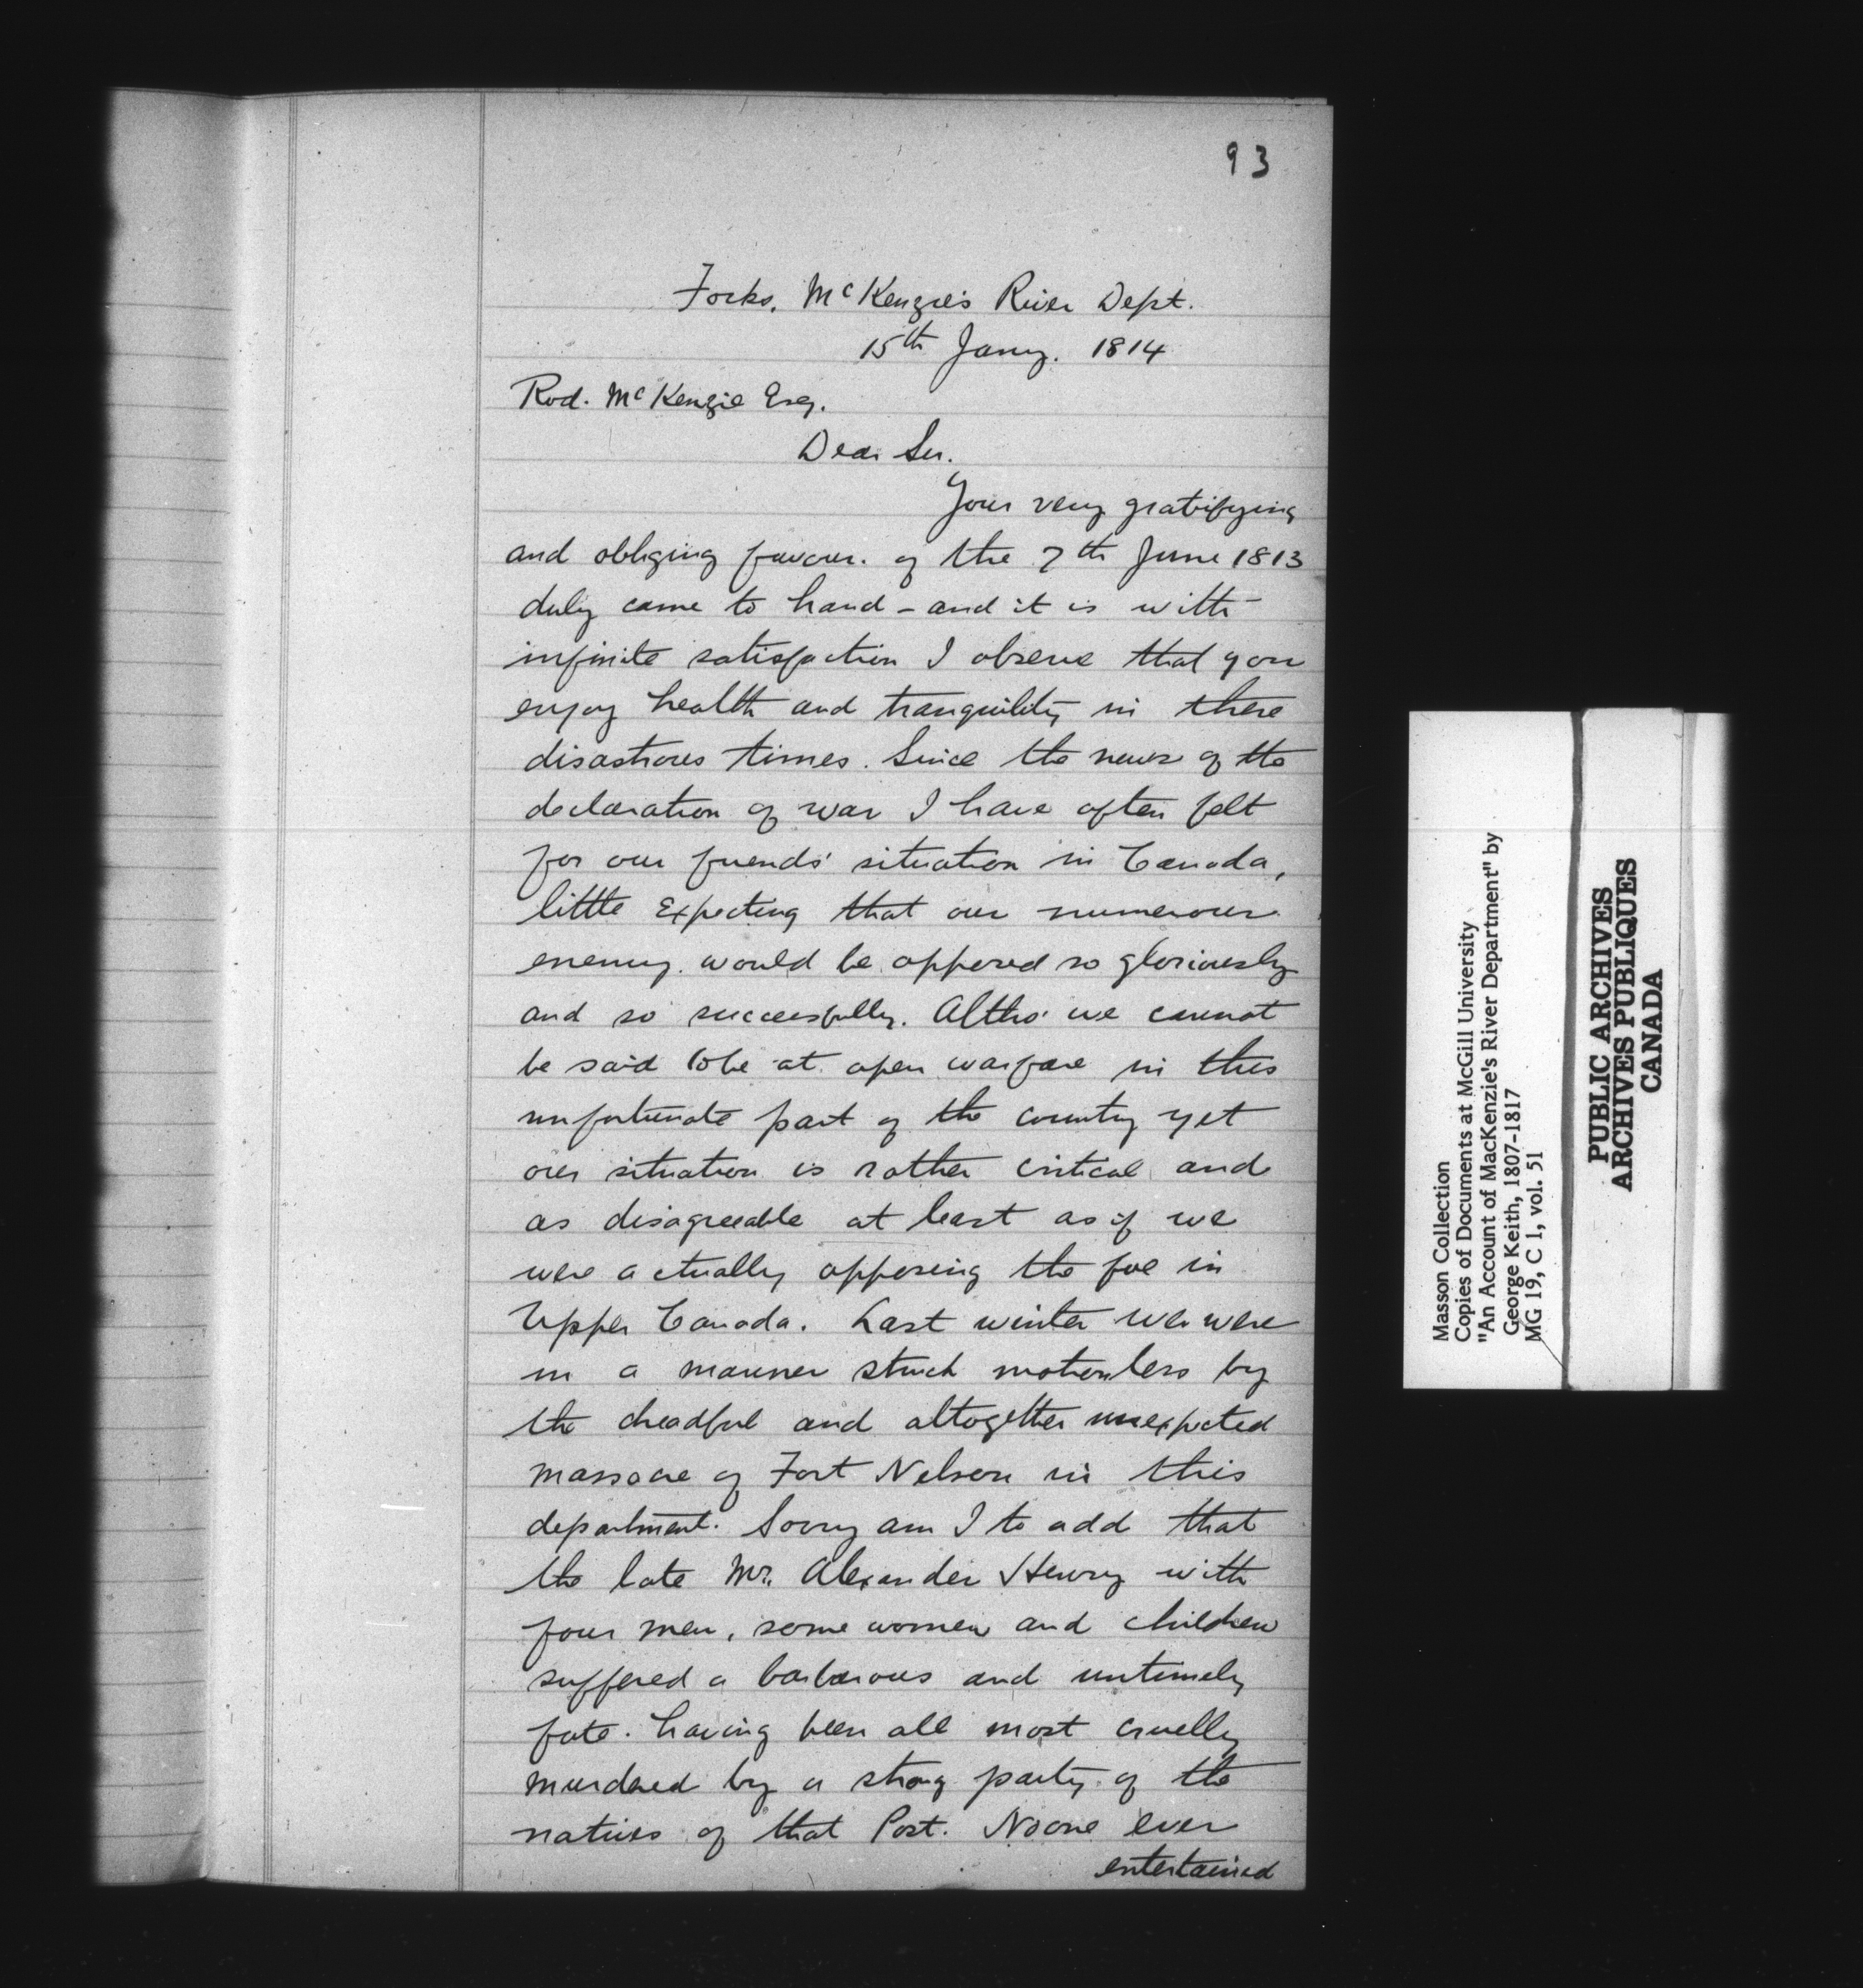 93
Forks, McKenzie's River Dept.
15th Jany. 1814
Rod. McKenzie Esq.
Dear Sir.
Your very gratifying
and obliging favour. of the 7th June 1813
duly came to hand - and it is with
infinite satisfaction I observe that you
enjoy health and tranquility in these
disastrous times. Since the news of the
declaration of war I have often felt
for our friends' situation in Canada,
little Expecting that our numerous
enemy would be opposed so gloriously
and so successfully. Altho' we cannot
be said to be at open warfare in this
unfortunate part of the country yet
our situation is rather critical and
as disagreeable at least as if we
were actually opposing the foe in
Upper Canada. Last winter we were
in a manner struck motionless by
the dreadful and altogether unexpected
massacre of Fort Nelson in this
department. Sorry am I to add that
the late Mr. Alexander Henry with
four men, some women and children
suffered a barbarous and untimely
fate. having been all most cruelly
murdered by a strong party of the
natives of that Post. No one ever
entertained
Masson Collection
Copies of Documents at McGill University
"An Account of MacKenzie's River Department" by
George Keith, 1807-1817
MG 19, C 1, vol. 51
PUBLIC ARCHIVES
ARCHIVES PUBLIQUES
CANADA